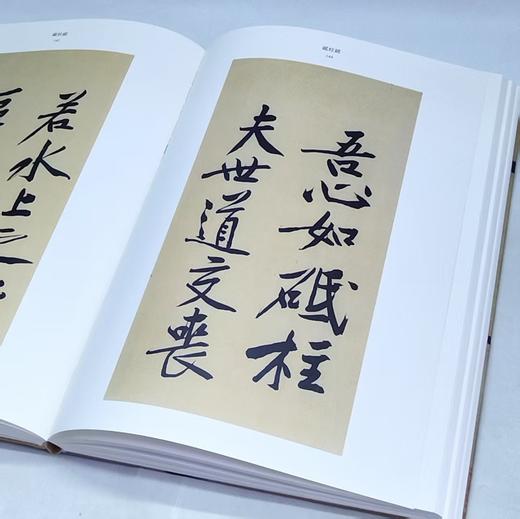 砥柱銘
吾心如砥柱
夫世道交喪
砥柱銘
若水上之